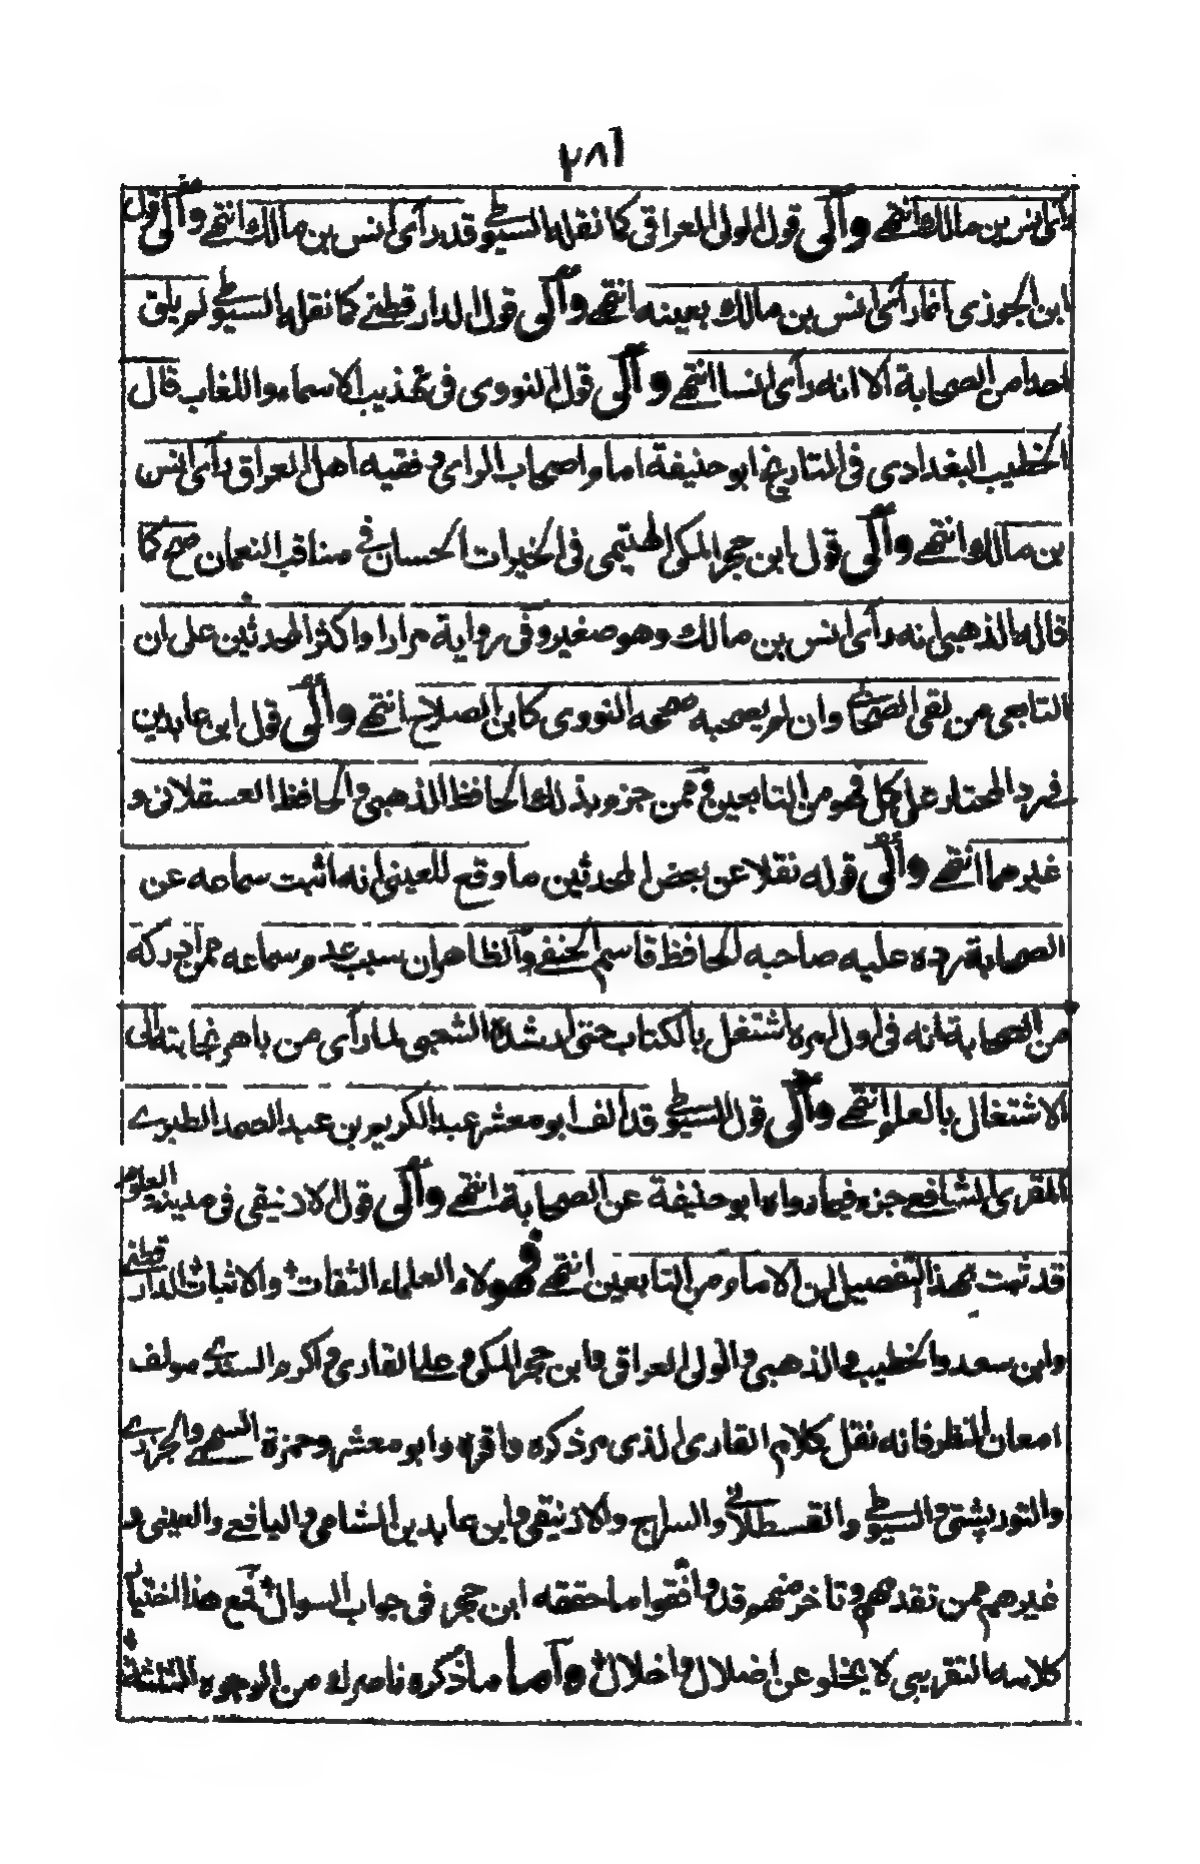 ٢٨٦
رأى انس بن مالك انتهى والى قول الولى العراقى كما نقله السيوطى قد رأى انس بن مالك انتهى والى قول
ابن الجوزى انما رأى انس بن مالك بعينه انتهى والى قول الدارقطنى كما نقله السيوطى لم يلق
احدا من الصحابة الا انه رأى انسا انتهى والى قول النووى فى تهذيب الاسماء واللغات قال
الخطيب البغدادى فى التاريخ ابو حنيفة امام اصحاب الراى وفقيه اهل العراق رأى انس
بن مالك انتهى والى قول ابن حجر المكى الهيتمى فى الخيرات الحسان فى مناقب النعمان صح كما
قاله الذهبى انه رأى انس بن مالك وهو صغير وفى رواية مرارا واكثر المحدثين على ان
التابعى من لقى الصحابى وان لم يصحبه صححه النووى كابن الصلاح انتهى والى قول ابن عابدين
فى رد المحتار على كل فهو من التابعين وممن جزم بذلك الحافظ الذهبى والحافظ العسقلانى و
غيرهما انتهى والى قوله نقلا عن بعض المحدثين ما وقع للعينى انه اثبت سماعه عن
الصحابة رده عليه صاحبه الحافظ قاسم الحنفى والظاهر ان سبب عدم سماعه ممن ادركه
من الصحابة انه فى اول امره اشتغل بالكتاب حتى ارشده الشعبى لما رأى من باهر نجابته الى
الاشتغال بالعلم انتهى والى قول السيوطى قد الف ابو معشر عبد الكريم بن عبد الصمد الطبرى
المقرى الشافعى جزء فيما رواه ابو حنيفة عن الصحابة انتهى والى قول الازنيقى فى مدينة العلوم
قد ثبت بهذا التفصيل ان الامام من التابعين انتهى فهولاء العلماء الثقات والاثبات الدارقطنى
وابن سعد والخطيب والذهبى والولى العراقى وابن حجر المكى وعلى القارى واكرم السندى مولف
امعان النظر فانه نقل كلام القارى الذى مر ذكره واقره وابو معشر وحمزة السهمى والجزرى
والتوربشتى والسيوطى والقسطلانى والسراج والازنيقى وابن عابدين الشامى واليافعى والعينى و
غيرهم ممن تقدمهم وتاخر منهم قد وافقوا ما حققه ابن حجر فى جواب السوال فمع هذا اختيار
كلامه التقريبى لا يخلو عن اضلال واخلال واما ما ذكره ناصراه من الوجوه الثلثة